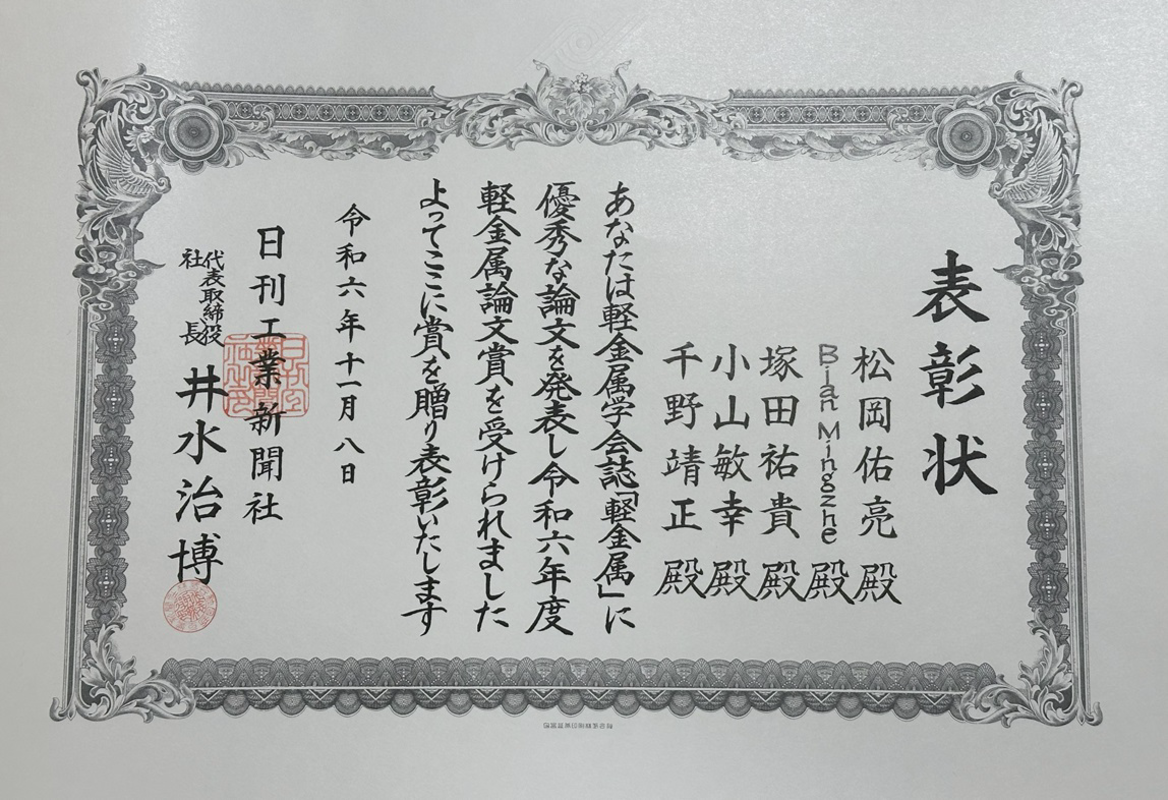 表彰状
松岡佑亮 殿
Bian Mingzhe 殿
塚田祐貴 殿
小山敏幸 殿
千野靖正 殿
あなたは軽金属学会誌「軽金属」に
優秀な論文を発表し令和六年度
軽金属論文賞を受けられました
よってここに賞を贈り表彰いたします
令和六年十一月八日
日刊工業新聞社
代表取締役
社長
井水治博